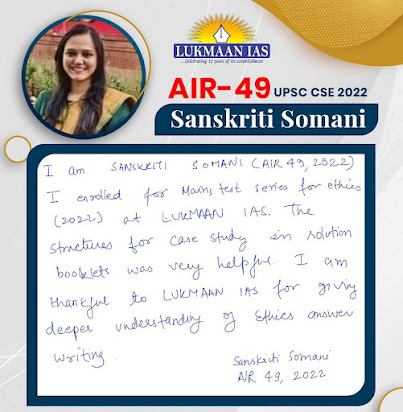 LUKMAAN IAS
...Celebrating 12 years of its establishment
AIR-49 UPSC CSE 2022
Sanskriti Somani
I am SANSKRITI SOMANI (AIR 49, 2022)
I enrolled for Mains test series for ethics
(2022) at LUKMAAN IAS. The
structures for case study in solution
booklets was very helpful. I am
thankful to LUKMAAN IAS for giving
deeper understanding of Ethics answer
writing.
Sanskriti Somani
AIR 49, 2022